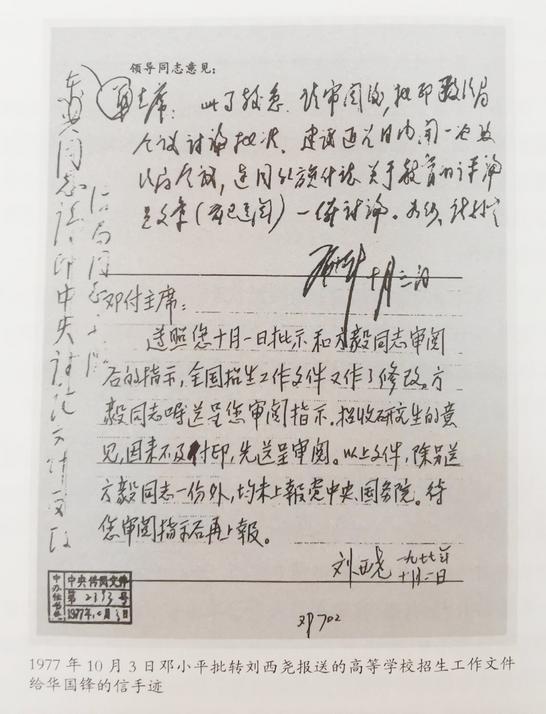 领导同志意见:
华主席:此事较急,请审阅后,批印政治局
会议讨论批决。建议近几日内开一次政
治局会议,连同外
关于教育的评论
文章(前已送阅)一併讨论。
邓小平 十月三日
东兴同志
印中央
政治局同志
邓付主席:
遵照您十月一日批示和方毅同志审阅
后的指示,全国招生工作文件又作了修改。方
毅同志嘱送呈您审阅指示。招收研究生的意
见,因来不及付印,先送呈审阅。以上文件,除另送
方毅同志一份外,均未上報党中央国务院。待
您审阅指示后再上報。
刘西尧 一九七七年
十月二日
中央传阅文件
第2133号
1977年10月3日
邓702
1977 年 10 月 3 日邓小平批转刘西尧报送的高等学校招生工作文件
给华国锋的信手迹